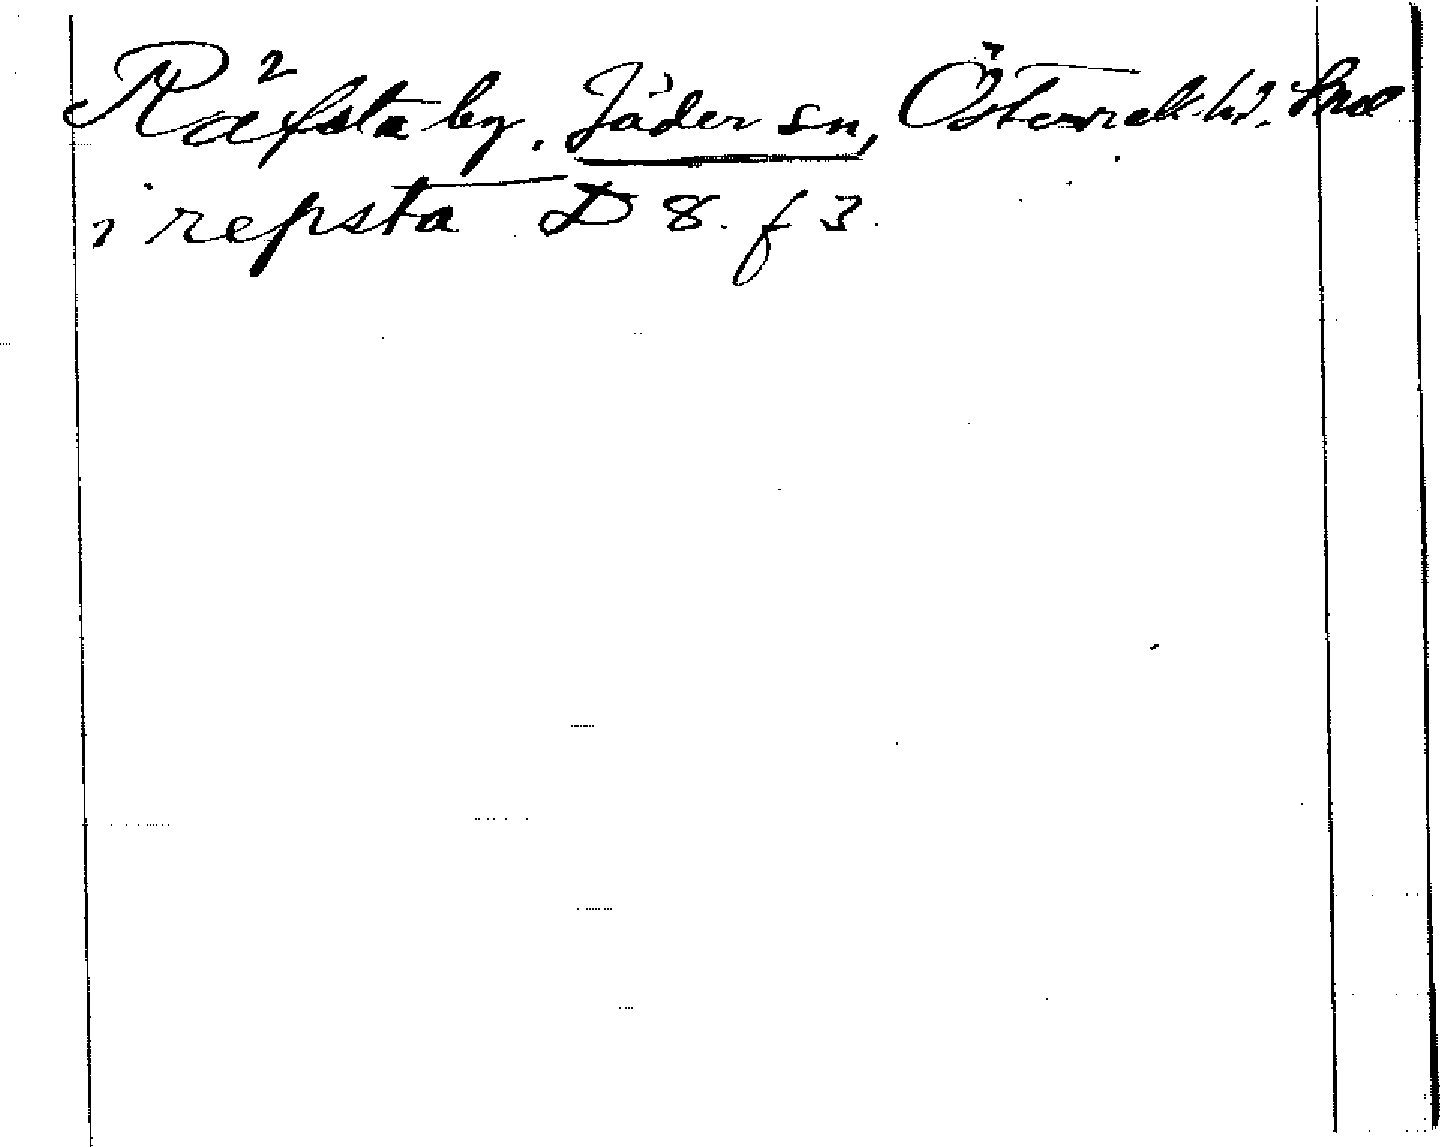 Räfsta by. Jäder sn, Österrek hd. Srml
i repsta D 8. f 3.